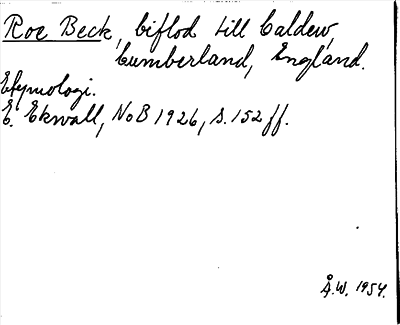 Roe Beck, biflod till Caldew,
Cumberland, England.
Etymologi.
E. Ekwall, NoB 1926, s. 152 ff.
Å.W. 1954.